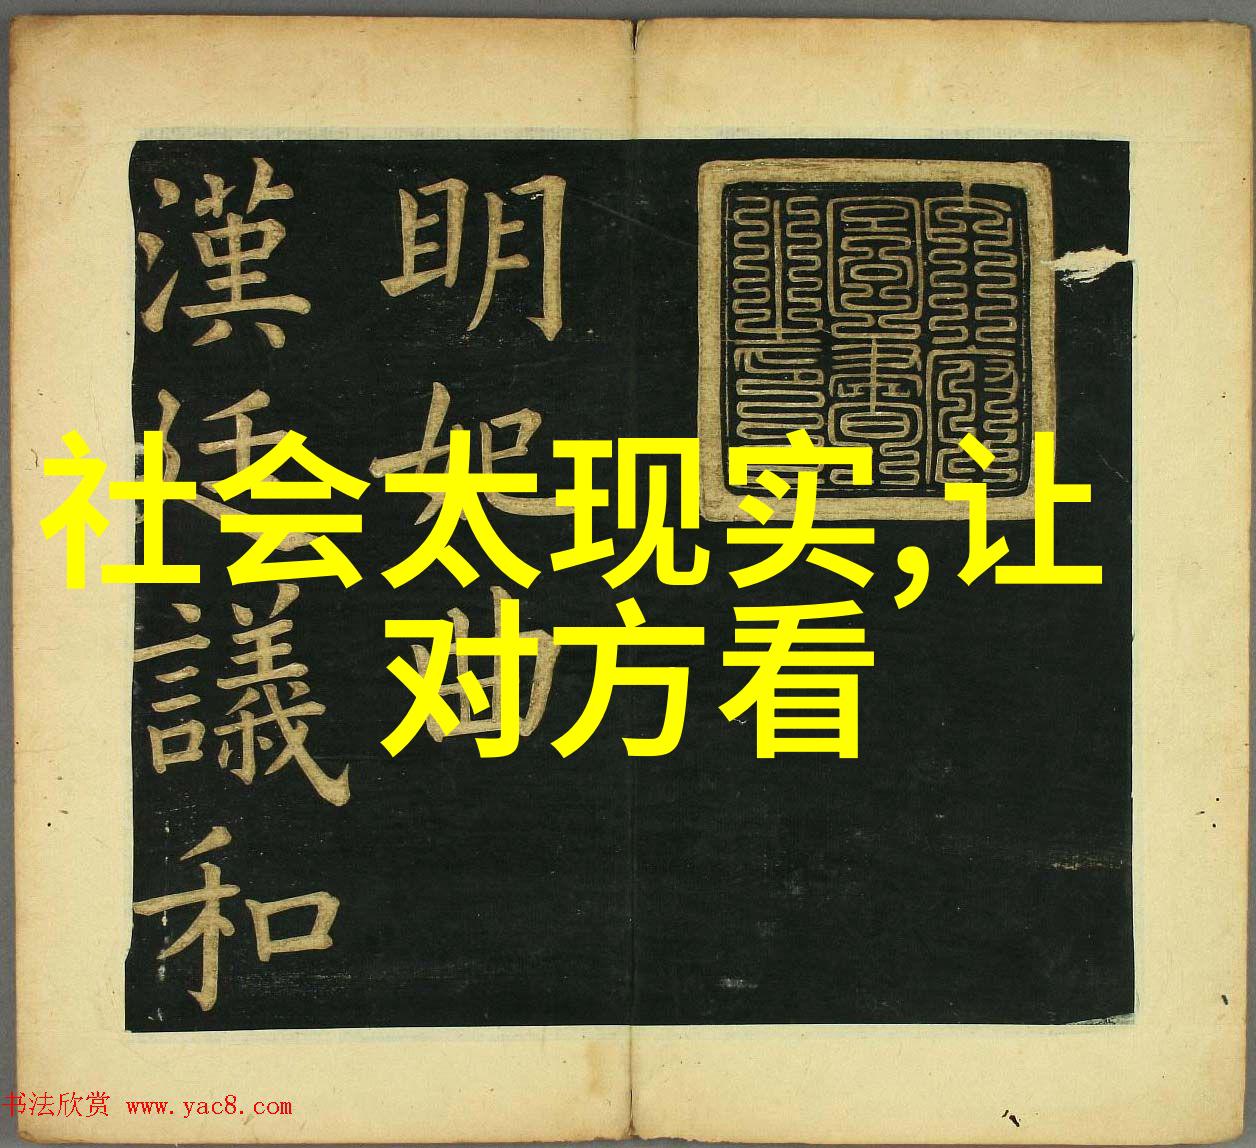 社会太现实,让
对方看
明妃曲
漢廷議和
书法欣赏 www.yac8.com